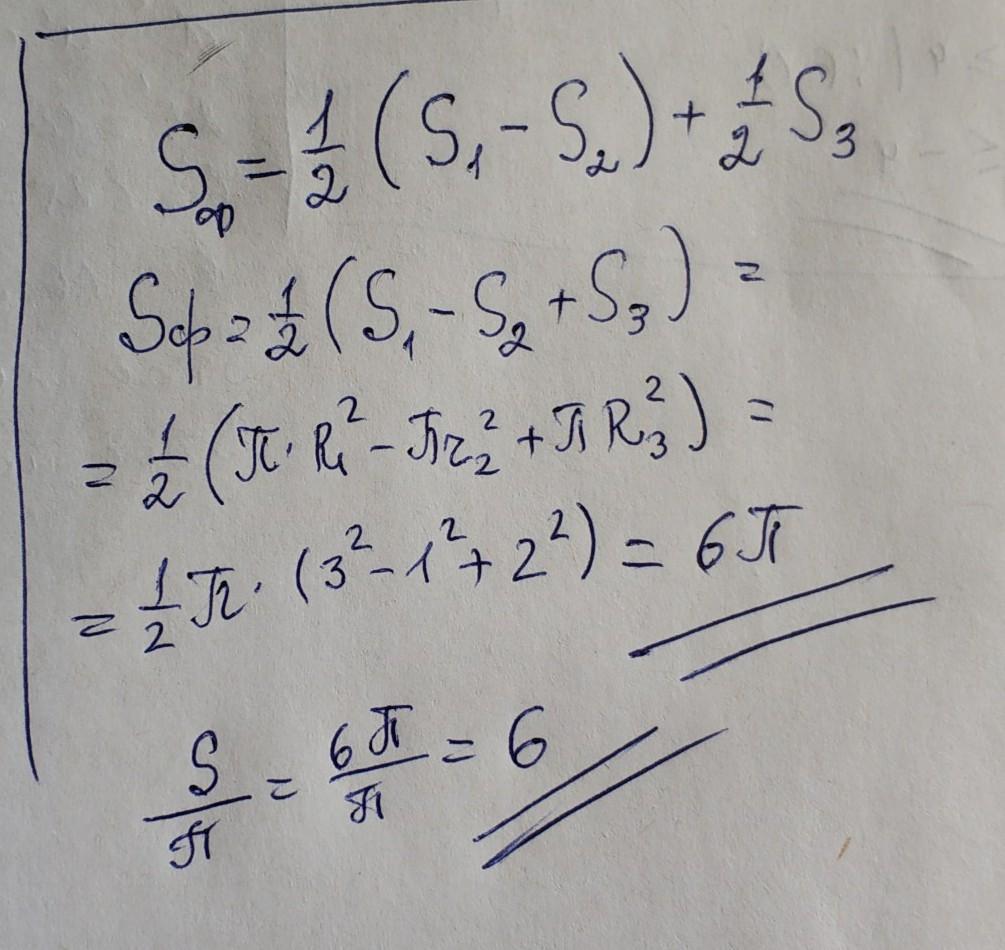 Sф = 1/2 (S₁ - S₂) + 1/2 S₃
Sф = 1/2 (S₁ - S₂ + S₃) =
= 1/2 (π · R₁² - πr₂² + πR₃²) =
= 1/2 π · (3² - 1² + 2²) = 6π
S/π = 6π/π = 6